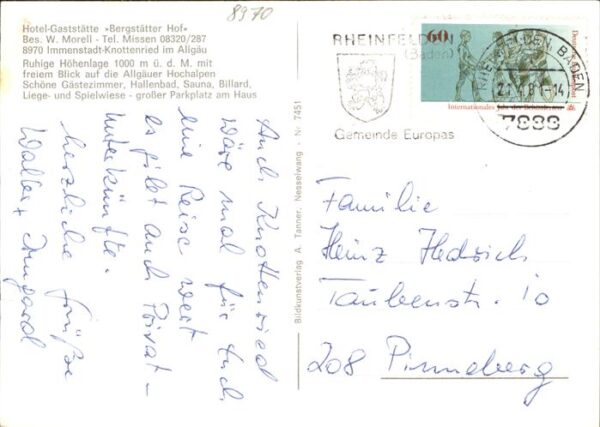 8970
Hotel-Gaststätte »Bergstätter Hof«
Bes. W. Morell - Tel. Missen 08320/287
8970 Immenstadt-Knottenried im Allgäu
Ruhige Höhenlage 1000 m ü. d. M. mit
freiem Blick auf die Allgäuer Hochalpen
Schöne Gästezimmer, Hallenbad, Sauna, Billard,
Liege- und Spielwiese - großer Parkplatz am Haus
Auch Knottenried
wäre mal für Euch
eine Reise wert
es gibt auch Privat-
unterkünfte.
herzliche Grüße
Walter + Irmgard
Bildkunstverlag A. Tanner, Nesselwang - Nr. 7451
RHEINFELDEN
(Baden)
Gemeinde Europas
60
Internationales Jahr der Behinderten
RHEINFELDEN, BADEN
-14
7888
Familie
Heinz Hedrich
Taubenstr. 10
208 Pinneberg